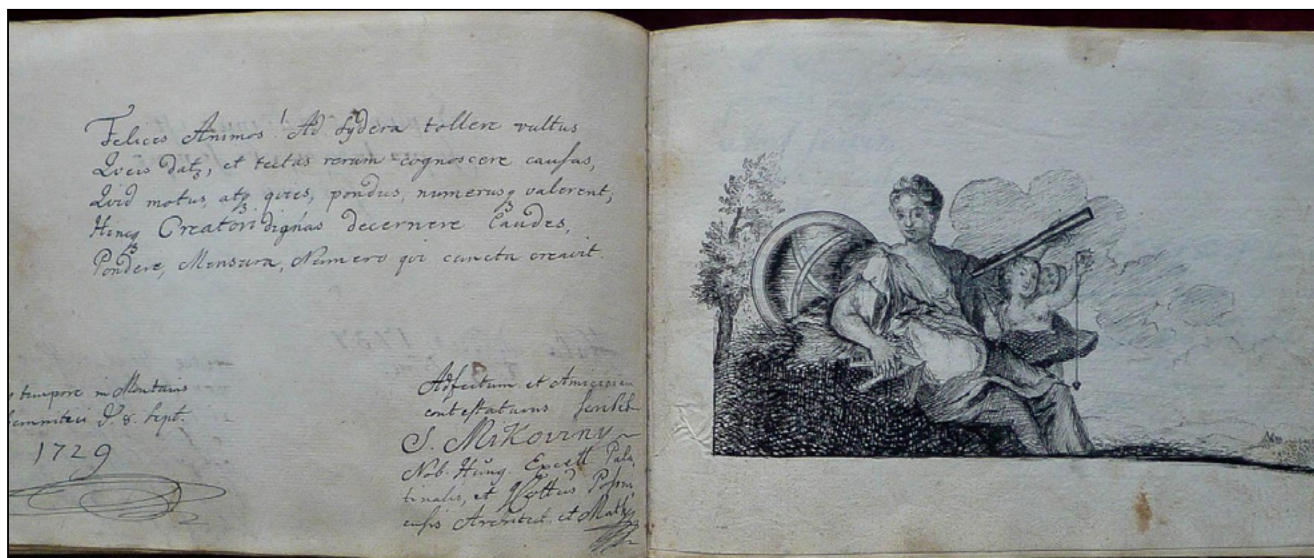 Felices Animos! Ad Sydera tollere vultus
Qveis datꝫ, et tectas rerum cognoscere causas,
Qvid motus, atqꝫ qvies, pondus, numerusqꝫ valerent,
Hincqꝫ Creatori dignas decernere Laudes,
Pondere, Mensura, Numero qvi cuncta creavit.
tempore in Montanis
d. 8. Sept.
1729
Adfectum et Amicitiam
contestaturus scribeb
S. Mikoviny
Nob. Hung. Excell Pala
tinalis, et Posoni
ensis Architect. et Math